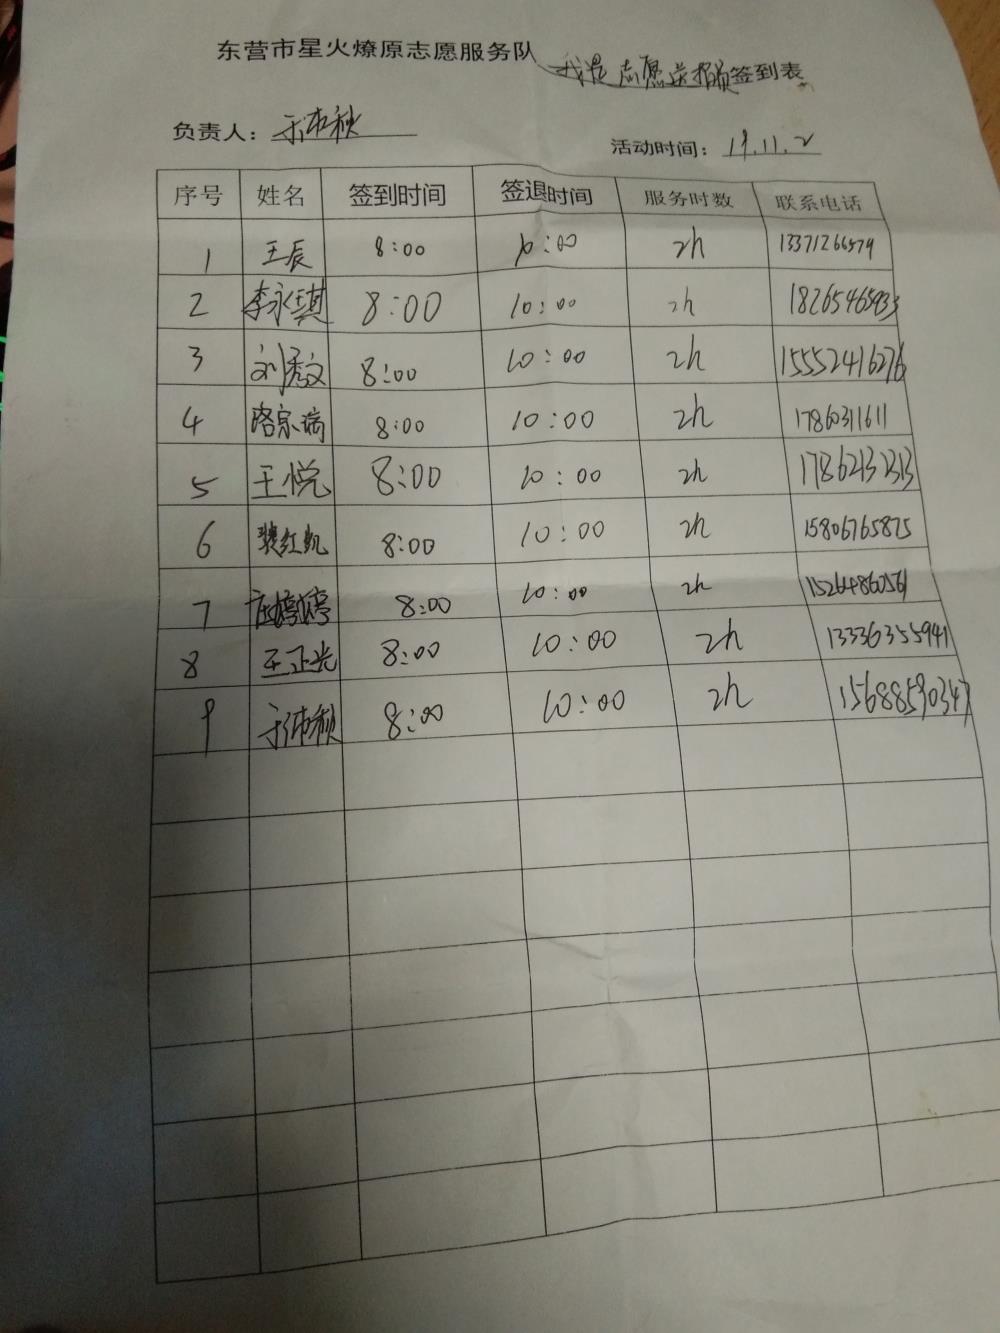 东营市星火燎原志愿服务队 我是志愿送报员签到表
负责人：于沛秋 活动时间：19.11.2
序号 姓名 签到时间 签退时间 服务时数 联系电话
1 王辰 8:00 10:00 2h 13371266579
2 李永琪 8:00 10:00 2h 18265465933
3 刘秀文 8:00 10:00 2h 15552416276
4 路宗瑞 8:00 10:00 2h 17860311611
5 王悦 8:00 10:00 2h 17862132313
6 裴红凯 8:00 10:00 2h 15806765875
7 8:00 10:00 2h 15264860561
8 王正光 8:00 10:00 2h 13336355941
9 于沛秋 8:00 10:00 2h 15688590347